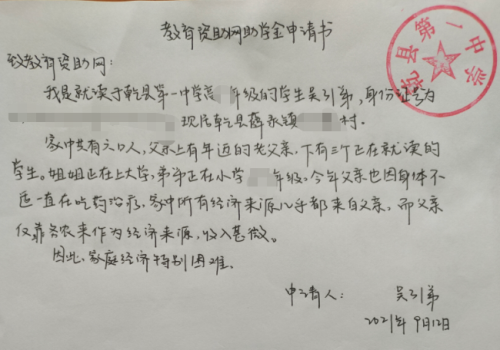 教育资助网助学金申请书
致教育资助网:
我是就读于乾县第一中学高 年级的学生吴引弟,身份证号为
现居乾县薛录镇 村.
家中共有六口人,父亲上有年迈的老父亲,下有三个正在就读的
学生。姐姐正在上大学,弟弟正在小学 年级。今年父亲也因身体不
适一直在吃药治疗,家中所有经济来源几乎都来自父亲,而父亲
仅靠务农来作为经济来源,收入甚微。
因此,家庭经济特别困难.
申请人: 吴引弟
2021年9月12日
乾县第一中学